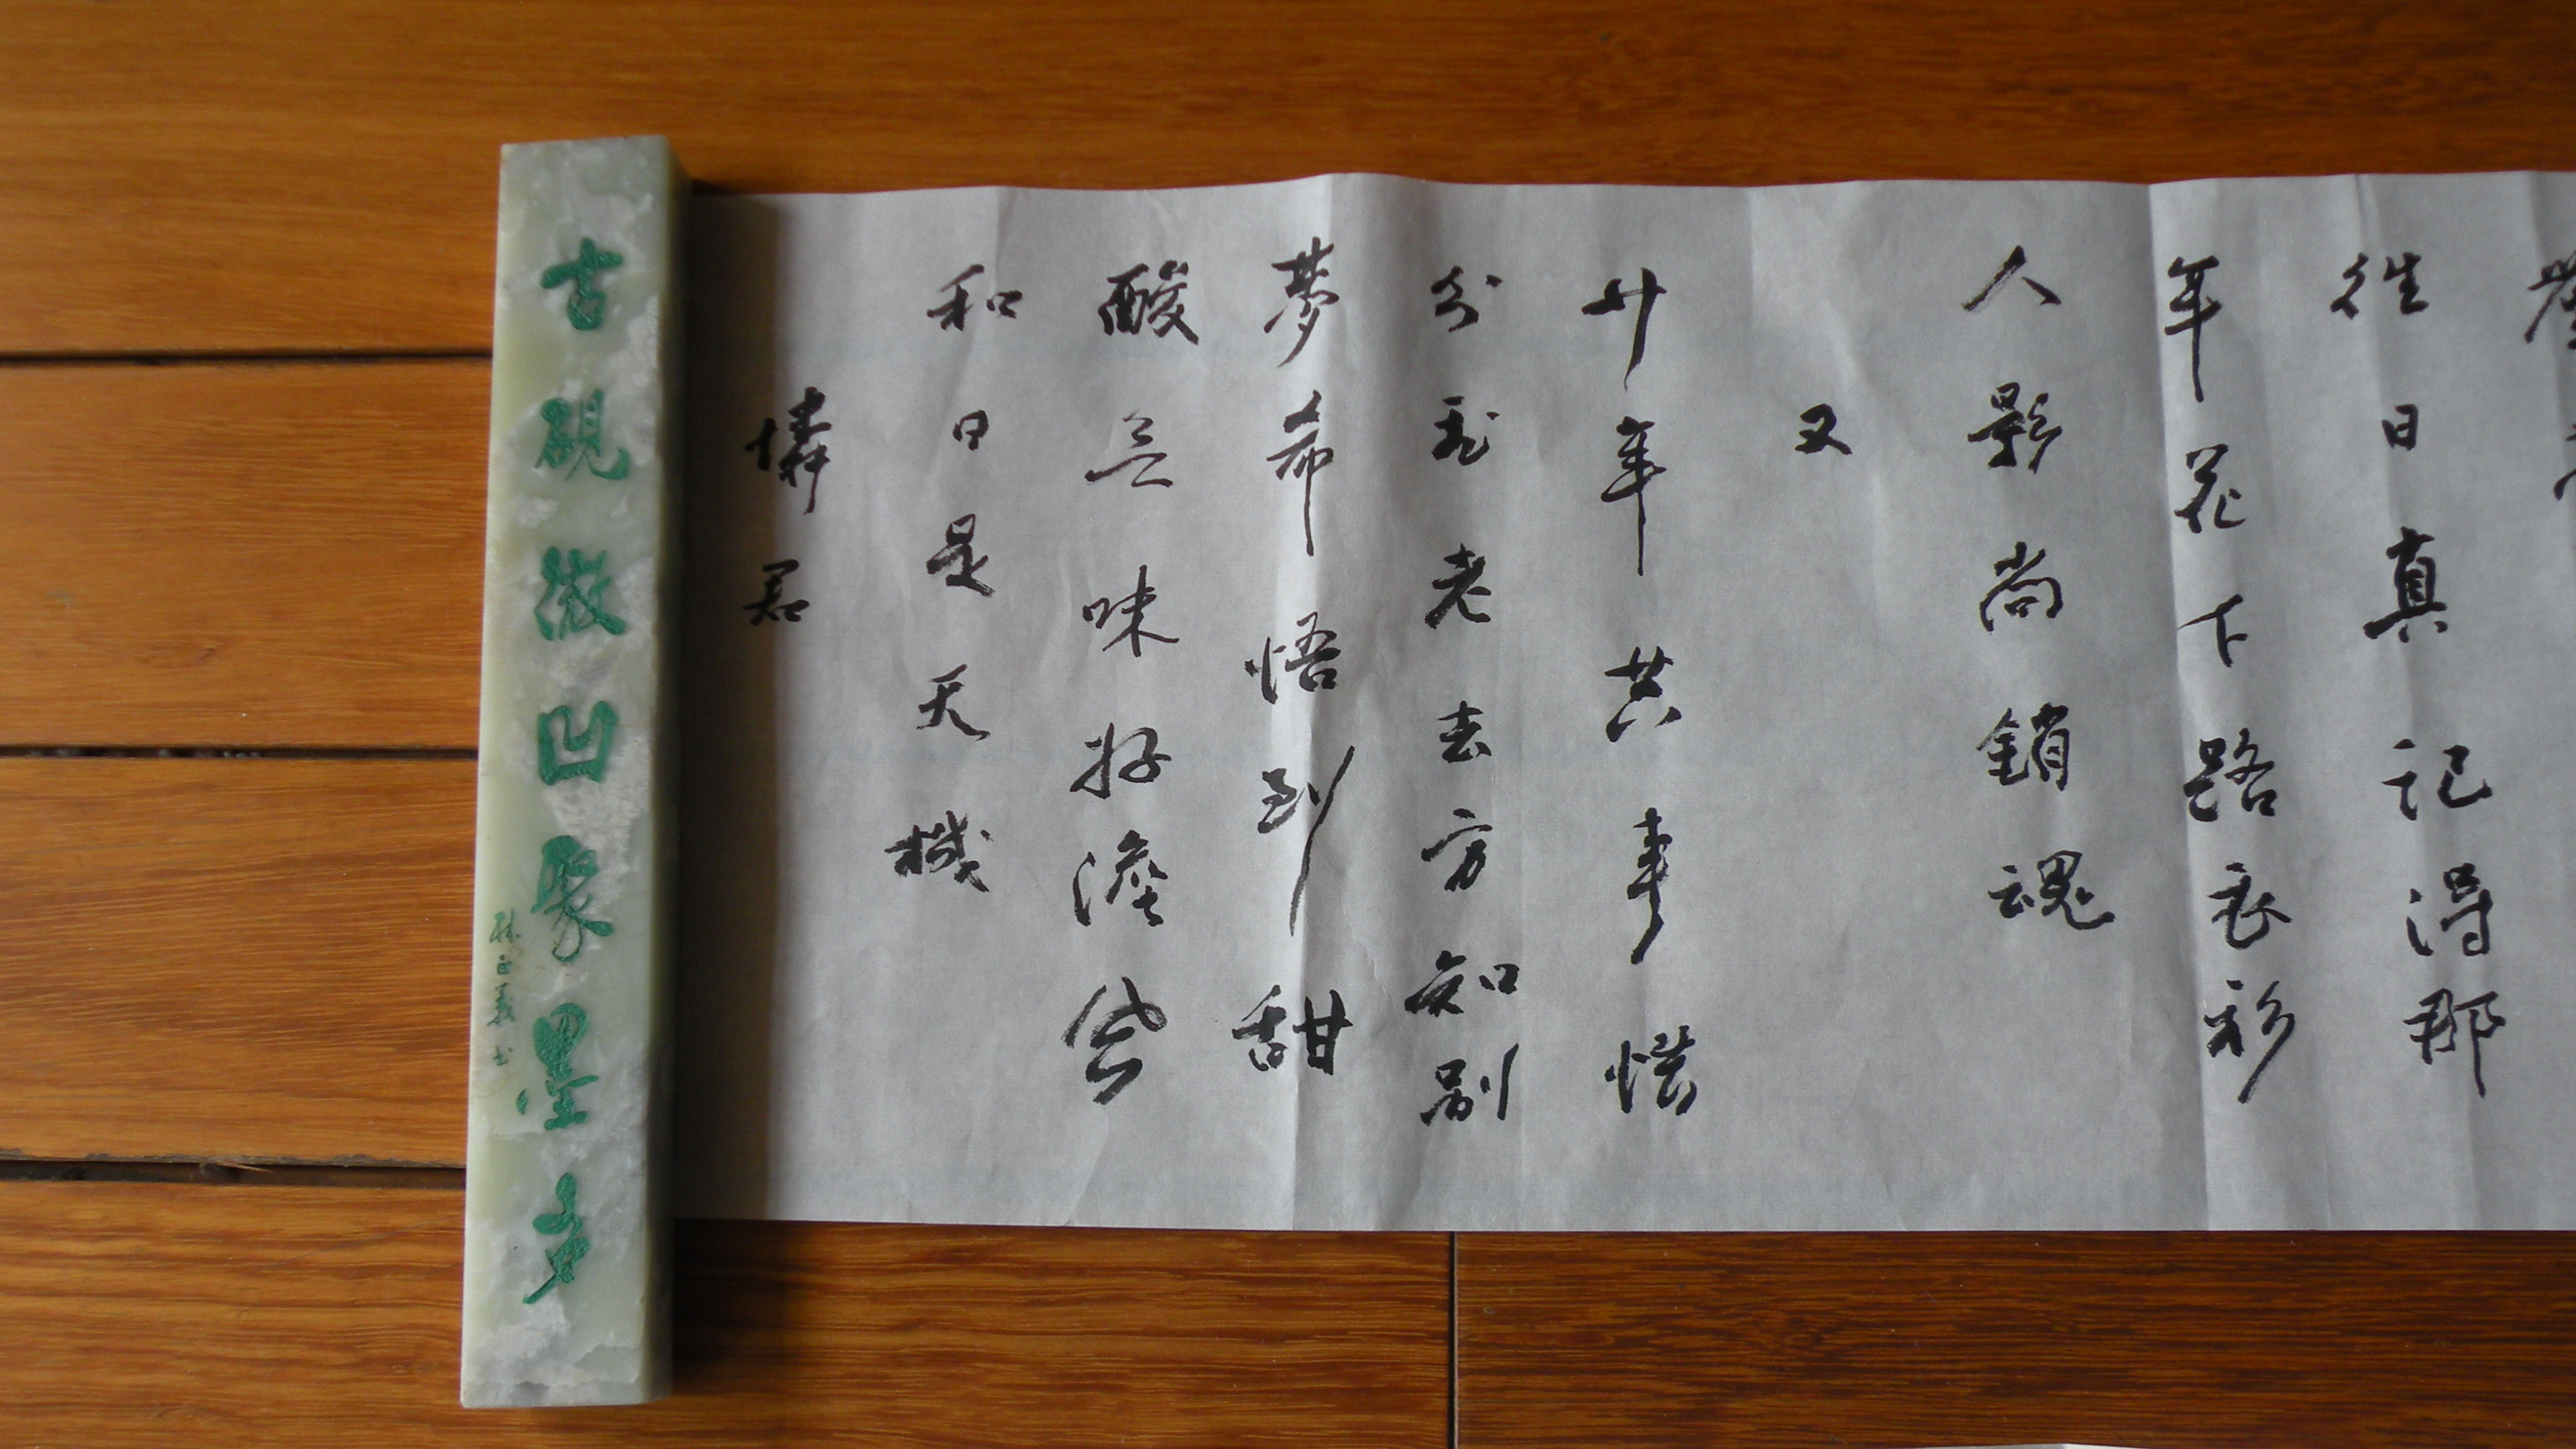 往日真記得那
年花下路衣衫
人影尚銷魂
又
廿年共事惜
分飛老去方知別
夢希悟到甜
酸三味好濃
和日是天機
憐君
古硯微凹聚墨多
孫正義书